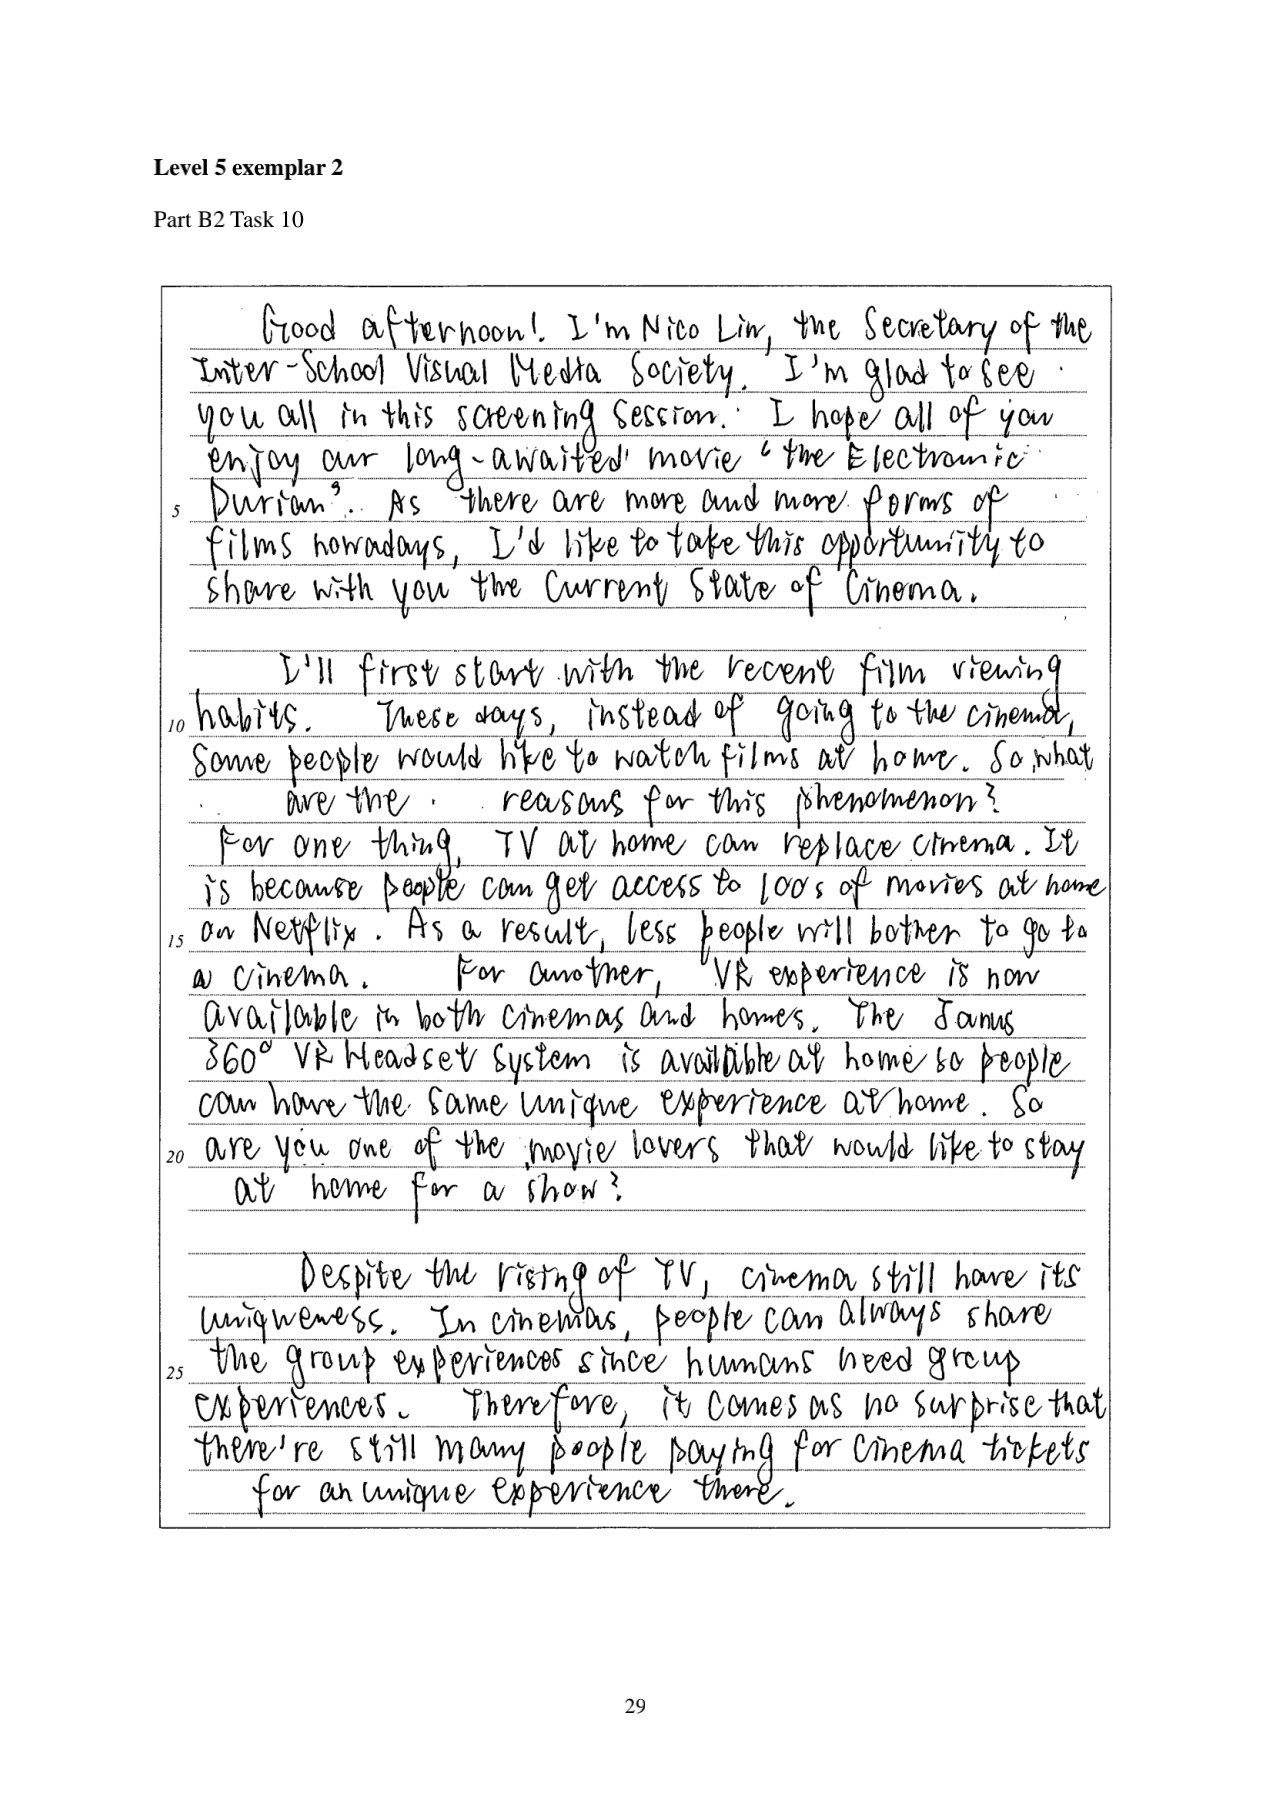 Level 5 exemplar 2
Part B2 Task 10
Good afternoon! I'm Nico Lin, the Secretary of the
Inter-School Visual Media Society. I'm glad to see
you all in this screening session. I hope all of you
enjoy our long-awaited movie ‘the Electronic
5 Durian’. As there are more and more forms of
films nowadays, I'd like to take this opportunity to
share with you the Current State of Cinema.
I'll first start with the recent film viewing
10 habits. These days, instead of going to the cinema,
some people would like to watch films at home. So what
are the reasons for this phenomenon?
For one thing, TV at home can replace cinema. It
is because people can get access to 100s of movies at home
15 on Netflix. As a result, less people will bother to go to
a cinema. For another, VR experience is now
available in both cinemas and homes. The Janus
360° VR Headset System is available at home so people
can have the same unique experience at home. So
20 are you one of the movie lovers that would like to stay
at home for a show?
Despite the rising of TV, cinema still have its
uniqueness. In cinemas, people can always share
25 the group experiences since humans need group
experiences. Therefore, it comes as no surprise that
there're still many people paying for cinema tickets
for an unique experience there.
29